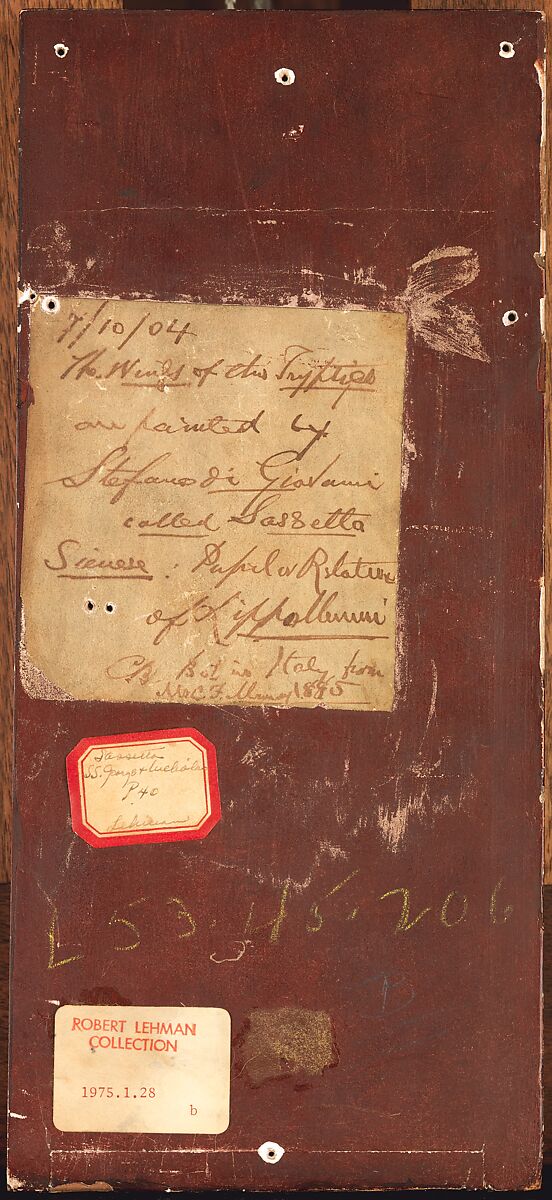 7/10/04
The Wings of this Tryptich
are painted by
Stefano di Giovanni
called Sassetta
Sienese: Pupil or Relative
of Lippo Memmi
CB Bot in Italy from
M C F Murray 1885
Sassetta
SS. George & Nicholas
P. 40
Lehman
L 53.45.206
B
ROBERT LEHMAN
COLLECTION
1975.1.28
b